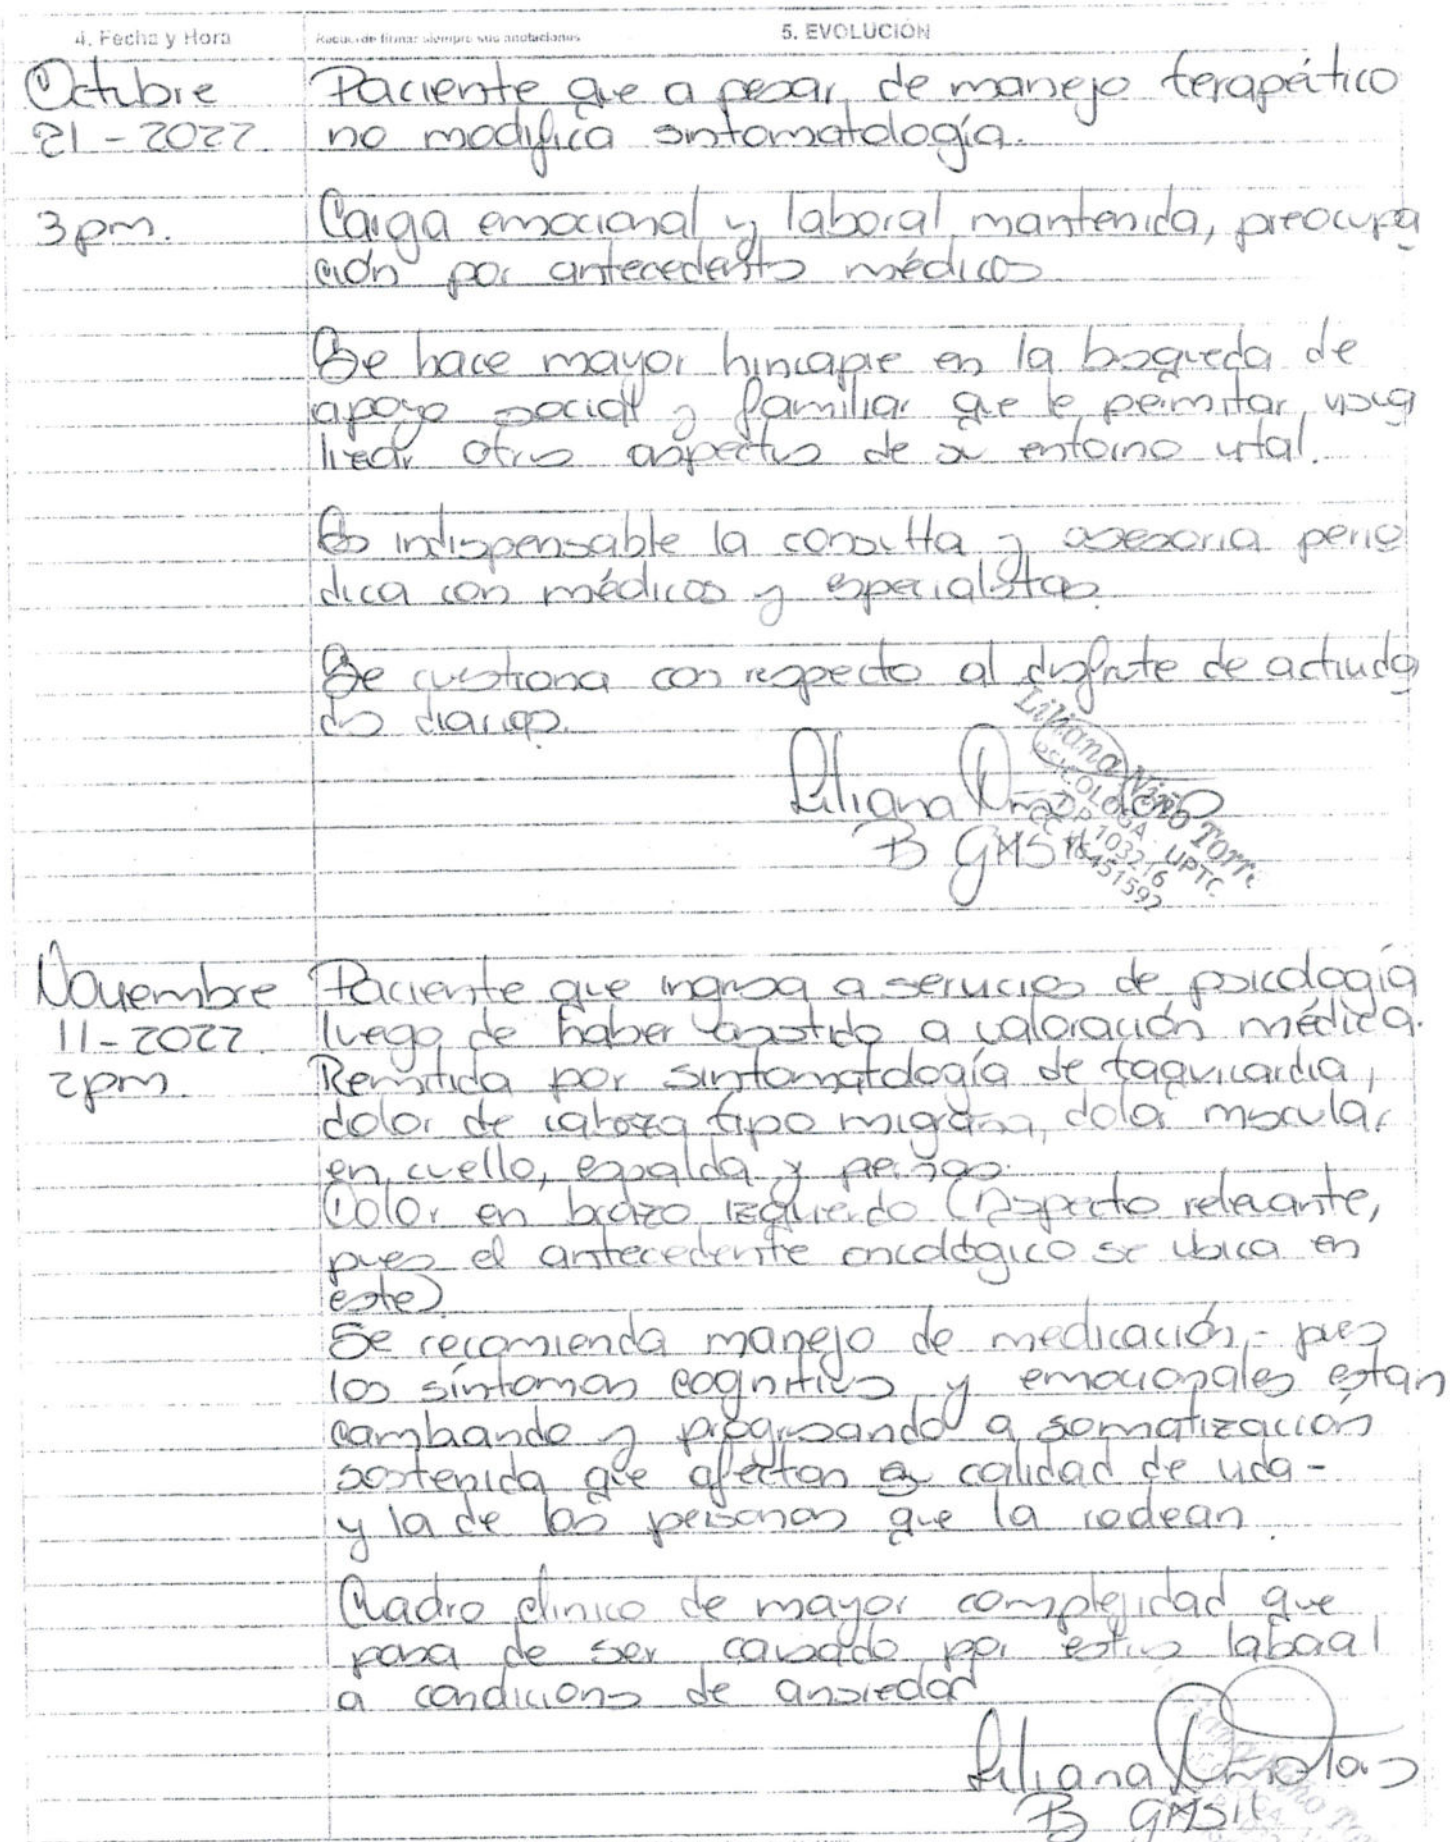 4. Fecha y Hora
Recuerde firmar siempre sus anotaciones
5. EVOLUCIÓN
Octubre
21-2022.
3pm.
Paciente que a pesar de manejo terapeítico
no modifica sintomatología.
Carga emocional y laboral mantenida, preocupa
ción por antecedentes médicos
Se hace mayor hincapie en la búsqueda de
apoyo social y familiar que le permitan visua
lizar otros aspectos de su entorno vital.
Es indispensable la consulta y asesoria perio
dica con médicos y especialistas.
Se cuestiona con respecto al disfrute de activida
des diarias.
Liliana
B GMSII
Liliana Niño Torre
PSICOLOGA UPTC
103216
Noviembre
11-2022.
2pm.
Paciente que ingresa a servicios de psicología
luego de haber asistido a valoración médica.
Remitida por sintomatología de taquicardia,
dolor de cabeza tipo migraña, dolor muscular
en cuello, espalda y piernas.
Dolor en brazo izquierdo (Aspecto relevante,
pues el antecedente oncológico se ubica en
este)
Se recomienda manejo de medicación - pues
los síntomas cognitivos y emocionales estan
cambiando y progresando a somatización
sostenida que afectan su calidad de vida -
y la de las personas que la rodean.
Cuadro clinico de mayor complejidad que
pasa de ser causado por estres laboral
a condiciones de ansiedad
Liliana
B GMSII